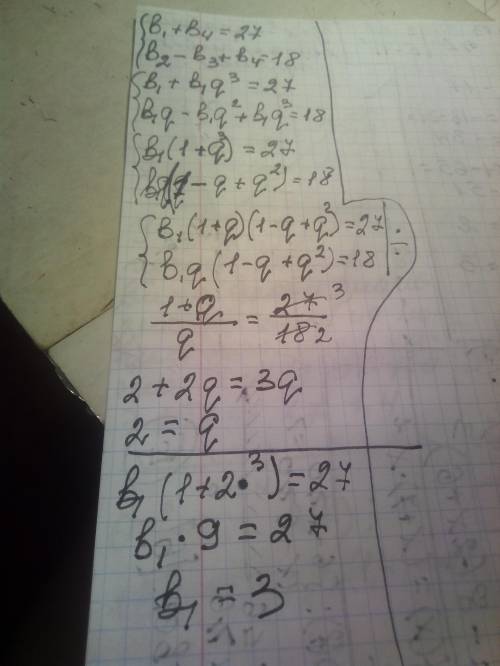 b₁ + b₄ = 27
b₂ - b₃ + b₄ = 18
b₁ + b₁q³ = 27
b₁q - b₁q² + b₁q³ = 18
b₁(1+q³) = 27
b₁q(1 - q + q²) = 18
b₁(1+q)(1-q+q²) = 27 ÷
b₁q(1-q+q²) = 18
1+q / q = 27 3 / 18 2
2 + 2q = 3q
2 = q
b₁(1+2·³) = 27
b₁ · 9 = 27
b₁ = 3